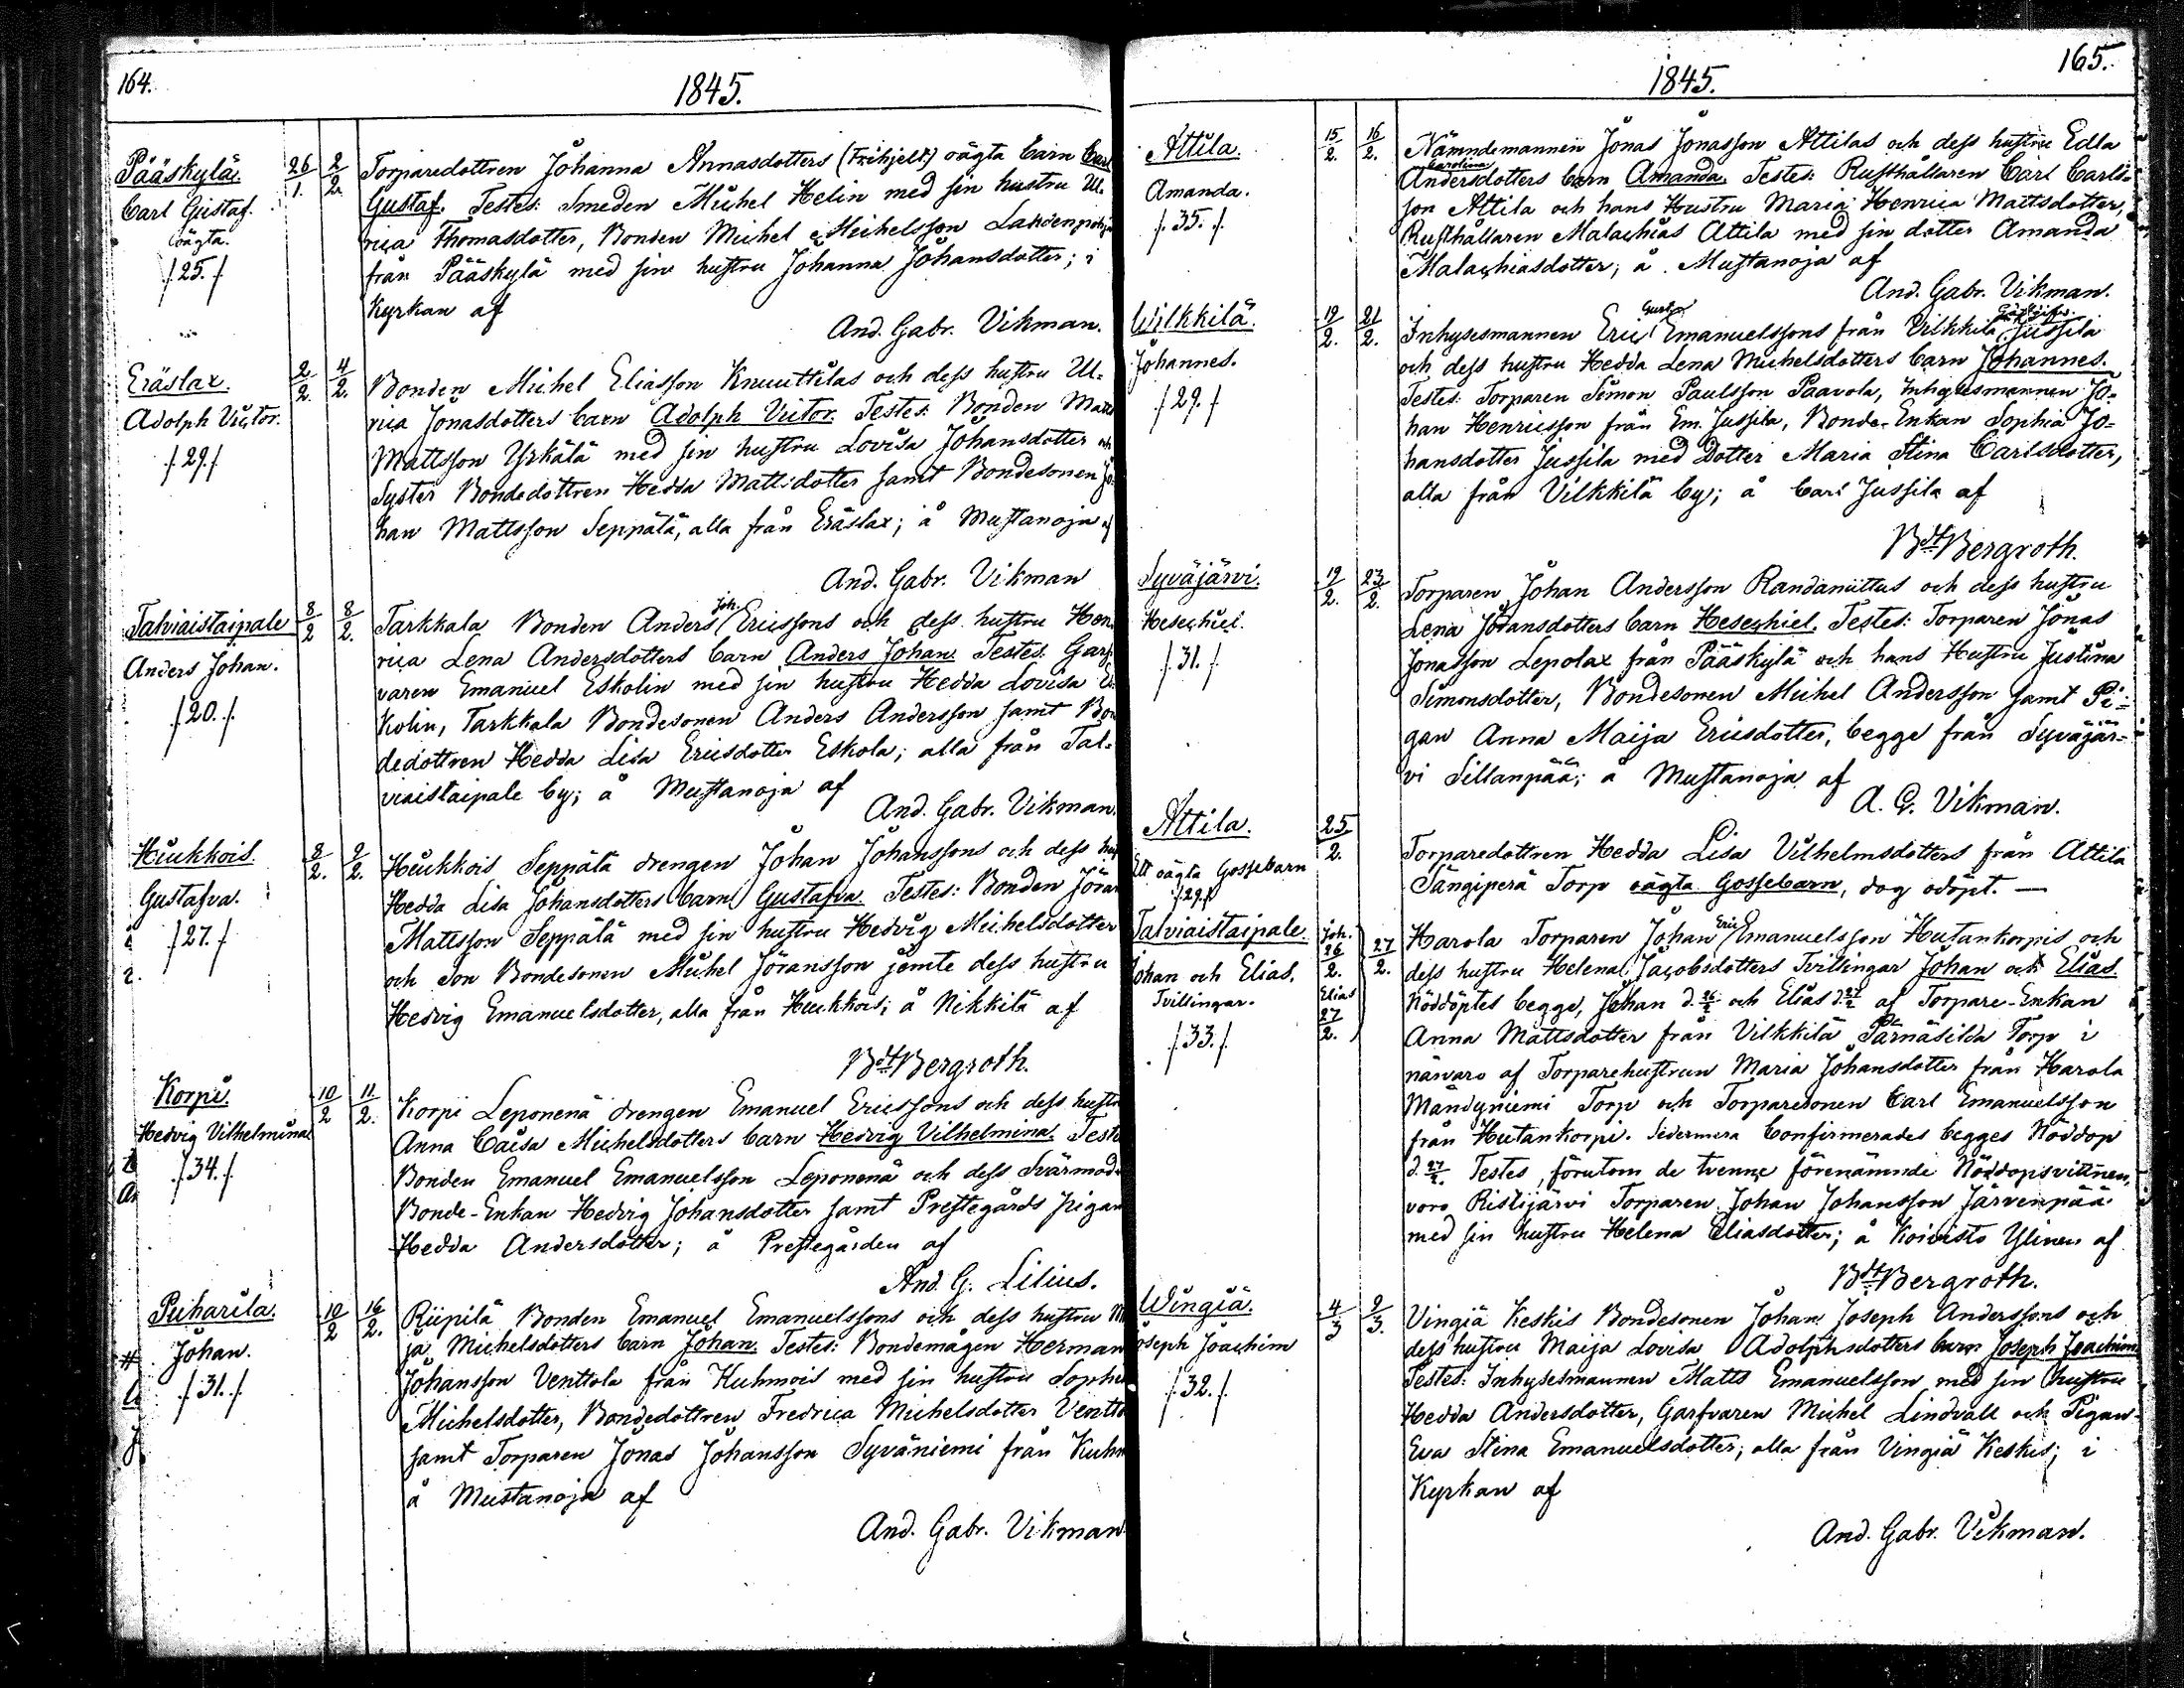 164.
1845.
Pääskylä.
Carl Gustaf.
oägta.
/. 25. /.
26/1.
2/2.
Torparedottren Johanna Annasdotters (Frihjelt) oägta barn Carl
Gustaf. Testes: Smeden Michel Helin med sin hustru Ul-
rica Thomasdotter, Bonden Michel Michelsson
från Pääskylä med sin hustru Johanna Johansdotter; i
Kyrkan af
And. Gabr. Vikman.
Eräslax.
Adolph Victor.
/. 29. /
2/2.
4/2.
Bonden Michel Eliasson Knuuttilas och dess hustru Ul-
rica Jonasdotters barn Adolph Victor. Testes: Bonden Matts
Mattsson Yrkälä med sin hustru Lovisa Johansdotter och
Syster Bondedottren Hedda Mattsdotter samt Bondesonen Jo-
han Mattsson Seppälä, alla från Eräslax; å Mustanoja af
And. Gabr. Vikman
Talviaistaipale
Anders Johan.
/. 20. /.
8/2
8/2.
Tarkkala Bonden Anders Joh. Ericssons och dess hustru Hen-
rica Lena Andersdotters barn Anders Johan. Testes: Garf-
varen Emanuel Eskolin med sin hustru Hedda Lovisa Es-
kolin, Tarkkala Bondesonen Anders Andersson samt Bon-
dedottren Hedda Lisa Ericsdotter Eskola; alla från Tal-
viaistaipale by; å Mustanoja af
And. Gabr. Vikman.
Hiukkois.
Gustafva.
/. 27. /.
8/2.
9/2.
Hiukkois Seppälä drengen Johan Johanssons och dess
Hedda Lisa Johansdotters barn Gustafva. Testes: Bonden Jöran
Mattsson Seppälä med sin hustru Hedvig Michelsdotter
och Son Bondesonen Michel Jöransson jemte dess hustru
Hedvig Emanuelsdotter, alla från Hiukkois; å Nikkilä af
Bdt Bergroth.
Korpi.
Hedvig Vilhelmina
/. 34. /.
10/2
11/2.
Korpi Leponenä drengen Emanuel Ericssons och dess hustru
Anna Caisa Michelsdotters barn Hedvig Vilhelmina. Testes
Bonden Emanuel Emanuelsson Leponenä och dess Svärmoder
Bonde-Enkan Hedvig Johansdotter samt Prestegårds pigan
Hedda Andersdotter; å Prestegården af
And. G. Lilius.
Puharila.
Johan.
/. 31. /.
10/2
16/2.
Riipilä Bonden Emanuel Emanuelssons och dess hustru
ja Michelsdotters barn Johan. Testes: Bondemågen Herman
Johansson Venttola från Kuhmois med sin hustru Sophia
Michelsdotter, Bondedottren Fredrica Michelsdotter
samt Torparen Jonas Johansson Syväniemi från
å Mustanoja af
And. Gabr. Vikman
165.
1845.
Attila.
Amanda.
/. 35. /.
15/2.
16/2.
Nämndemannen Jonas Jonasson Attilas och dess hustru Edla
Carolina
Andersdotters barn Amanda. Testes: Rusthållaren Carl Carls-
son Attila och hans Hustru Maria Henrica Mattsdotter,
Rusthållaren Malachias Attila med sin dotter Amanda
Malachiasdotter; å Mustanoja af
And. Gabr. Vikman.
Wilkkilä.
Johannes.
/. 29. /
19/2.
21/2.
Inhysesmannen Eric Gustaf Emanuelssons från Vilkkilä Jussila
och dess hustru Hedda Lena Michelsdotters barn Johannes.
Testes: Torparen Simon Paulsson Paavola, Inhysesmannen Jo-
han Henricsson från Em. Jussila, Bonde-Enkan Sophia Jo-
hansdotter Jussila med Dotter Maria Stina Carlsdotter,
alla från Vilkkilä by; å Carl Jussila af
Bdt Bergroth.
Syväjärvi.
Hesechiel.
/. 31. /.
19/2.
23/2.
Torparen Johan Andersson Randaniittus och dess hustru
Lena Johansdotters barn Hesechiel. Testes: Torparen Jonas
Jonasson Lepolax från Pääskylä och hans Hustru Justina
Simonsdotter, Bondesonen Michel Andersson samt Pi-
gan Anna Maija Ericsdotter, begge från Syväjär-
vi Sillanpää; å Mustanoja af
A. G. Vikman.
Attila.
Ett oägta Gossebarn
/. 29. /.
25/2.
Torparedottren Hedda Lisa Vilhelmsdotters från Attila
Sängiperä Torp oägta Gossebarn, dog odöpt. —
Talviaistaipale.
Johan och Elias.
Tvillingar.
/. 33. /.
Joh. 26/2.
Elias 27/2.
27/2.
Harola Torparen Johan Eric Emanuelsson Hutankorpis och
dess hustru Helena Jacobsdotters Tvillingar Johan och Elias.
Nöddöptes begge, Johan d. 26/2 och Elias d. 27/2 af Torpare-Enkan
Anna Mattsdotter från Vilkkilä Pärnäsilda Torp i
närvaro af Torparehustrun Maria Johansdotter från Harola
Mändyniemi Torp och Torparesonen Carl Emanuelsson
från Hutankorpi. Sedermera Confirmerades begges Nöddop
d. 27/2. Testes, förutom de tvenne förenämnde Nöddopsvittnen,
voro Ristijärvi Torparen Johan Johansson Järvenpää
med sin hustru Helena Eliasdotter; å Koivisto Ylinen af
Bdt Bergroth.
Wingiä.
Joseph Joachim
/. 32. /.
4/3
9/3.
Vingiä Keskis Bondesonen Johan Joseph Anderssons och
dess hustru Maija Lovisa Adolphsdotters barn Joseph Joachim.
Testes: Inhysesmannen Matts Emanuelsson med sin hustru
Hedda Andersdotter, Garfvaren Michel Lindvall och Pigan
Eva Stina Emanuelsdotter, alla från Vingiä Keskis; i
Kyrkan af
And. Gabr. Vikman.